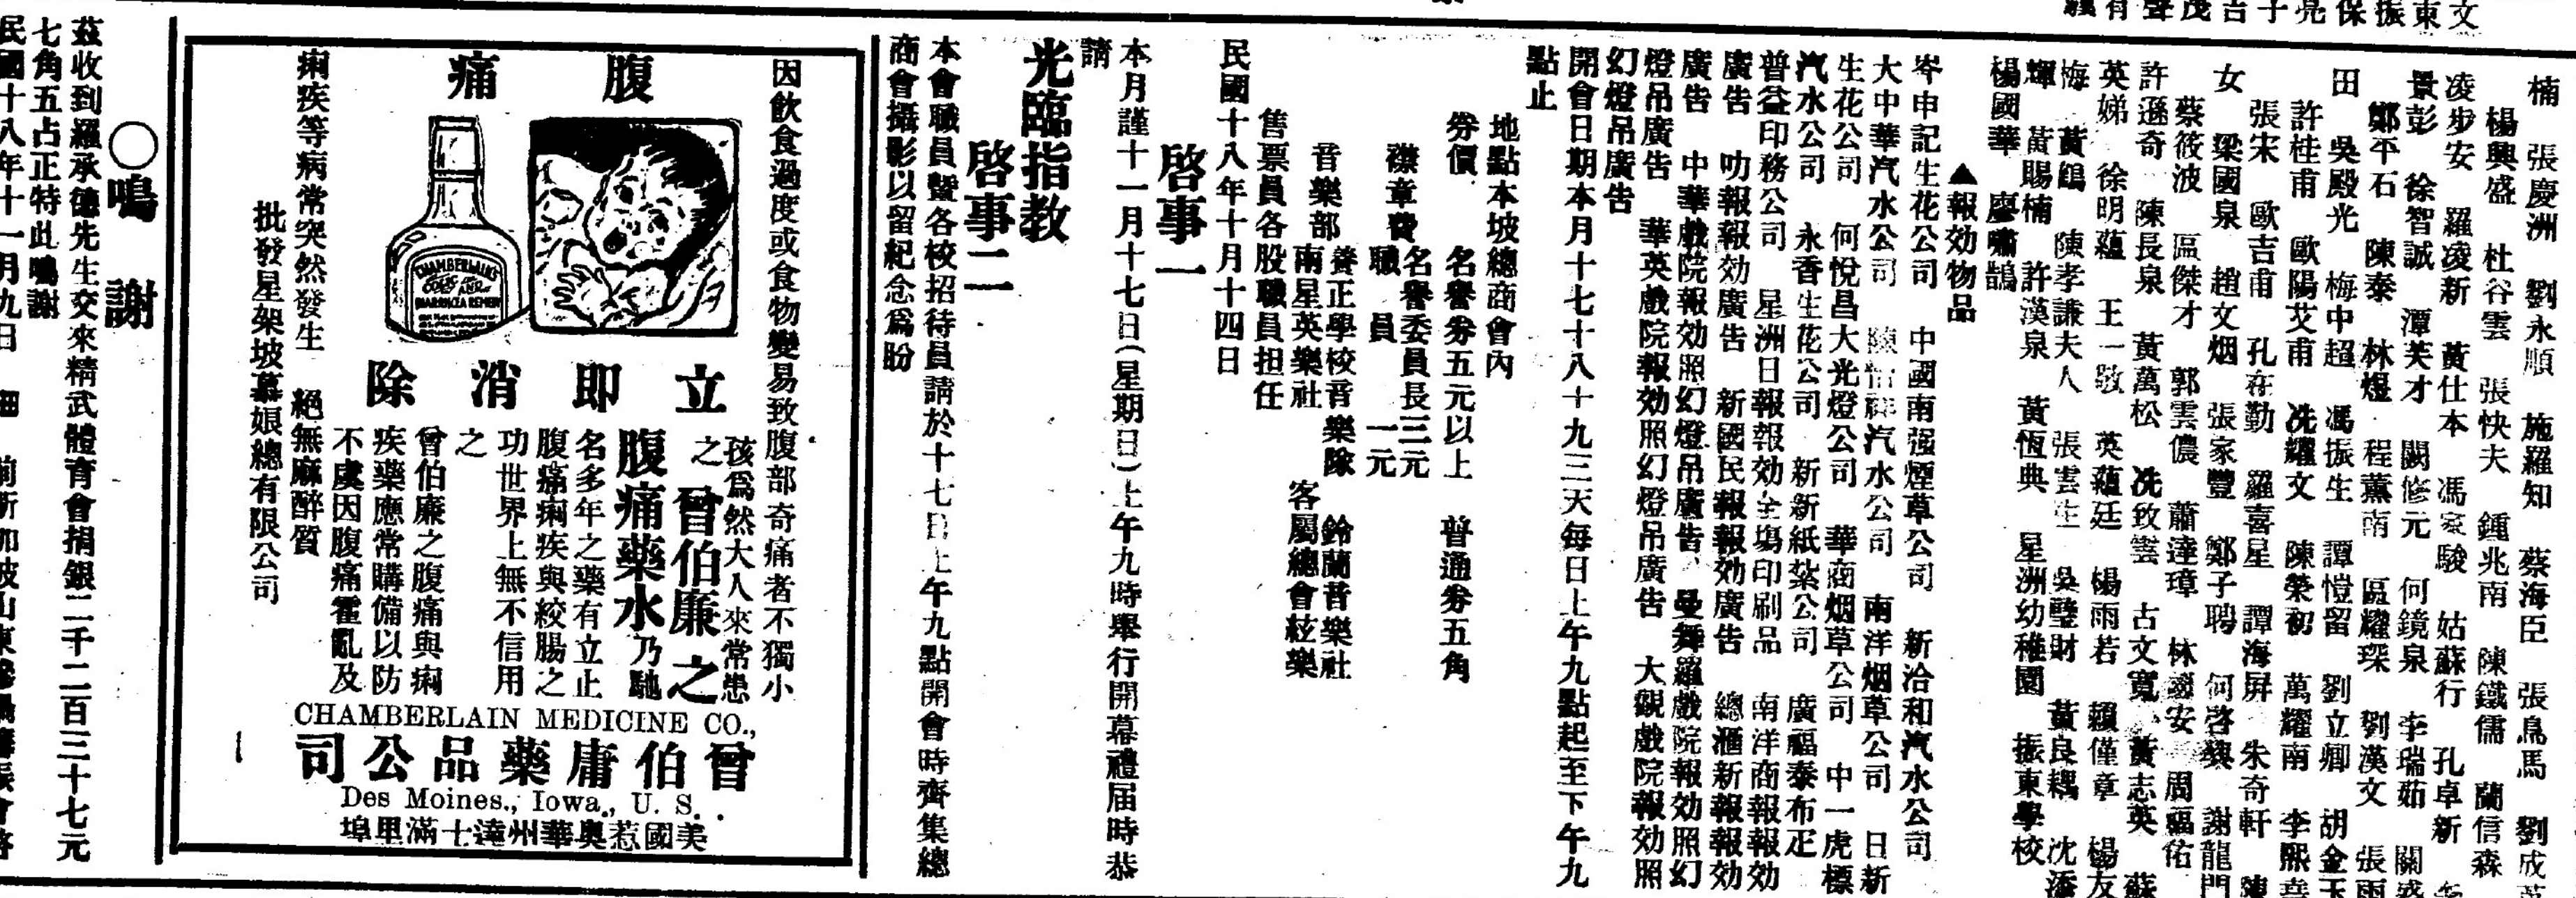 楠　張慶洲　劉永順　施羅知　蔡海臣　張鳥馬　劉成
楊興盛　杜谷雲　張快夫　鍾兆南　陳鐵儒　蘭信森
凌步安　羅凌新　黃仕本　馮家駿　姑蘇行　孔卓新
景彭　徐智誠　潭芙才　闕修元　何鏡泉　李瑞茹　關
鄭平石　陳泰　林煜　程薰南　區耀琛　劉漢文　張雨
田　吳殿光　梅中超　馮振生　譚愷留　劉立卿　胡金玉
許桂甫　歐陽艾甫　冼耀文　陳榮初　萬耀南　李熙
張宋　歐吉甫　孔存勤　羅喜星　譚海屏　朱奇軒　陳
女　梁國泉　趙文烟　張家豐　鄭子聘　何啓　謝龍門
蔡筱波　區傑才　郭雲儂　蕭達璋　林國安　周福佑
許遜奇　陳長泉　黃萬松　冼致雲　古文寬　黃志英　蘇
英娣　徐明蘊　王一敬　英蘊廷　楊雨若　賴僅章　楊友
梅　黃鶴　陳孝謙夫人　張雲生　吳璧財　黃良耦　沈
輝　黃賜楠　許漢泉　黃恆典　星洲幼稚園　振東學校
楊國華　廖嘯鵲
▲報効物品
岑申記生花公司　中國南强煙草公司　新洽和汽水公司
大中華汽水公司　汽水公司　南洋烟草公司　日新
生花公司　何悅昌大光燈公司　華商烟草公司　中一虎標
汽水公司　永香生花公司　新新紙紮公司　廣福泰布疋
普益印務公司　星洲日報報効全塲印刷品　南洋商報報効
廣告　叻報報効廣告　新國民報報効廣告　總滙新報報効
廣告　中華戲院報効照幻燈吊廣告　曼舞羅戲院報効照幻
燈吊廣告　華英戲院報効照幻燈吊廣告　大觀戲院報効照
幻燈吊廣告
開會日期本月十七十八十九三天每日上午九點起至下午九
點止
地點本坡總商會內
劵價　名譽劵五元以上　普通劵五角
襟章費　名譽委員長三元
職員　一元
音樂部　養正學校音樂隊　鈴蘭音樂社
南星英樂社　客屬總會絃樂
售票員各股職員担任
民國十八年十月十四日
啓事一
本月謹十一月十七日（星期日）上午九時舉行開幕禮届時恭
請
光臨指教
啓事二
本會職員曁各校招待員請於十七日上午九點開會時齊集總
商會攝影以留紀念爲盼
因飲食過度或食物變易致腹部奇痛者不獨小
孩爲然大人來常患
之
腹痛
CHAMBERLAIN'S
COLIC AND
DIARRHŒA REMEDY
立即消除
曾伯廉之
腹痛藥水乃馳
名多年之藥有立止
腹痛痢疾與絞腸之
功世界上無不信用
之
曾伯廉之腹痛與痢
疾藥應常購備以防
不虞因腹痛霍亂及
痢疾等病常突然發生　絕無麻醉質
批發星架坡慕娘總有限公司
CHAMBERLAIN MEDICINE CO.,
曾伯庸藥品公司
Des Moines., Iowa., U. S.
美國惹奧華州達士滿里埠
○鳴謝
茲收到羅承德先生交來精武體育會捐銀二千二百三十七元
七角五占正特此鳴謝
民國十八年十一月九日